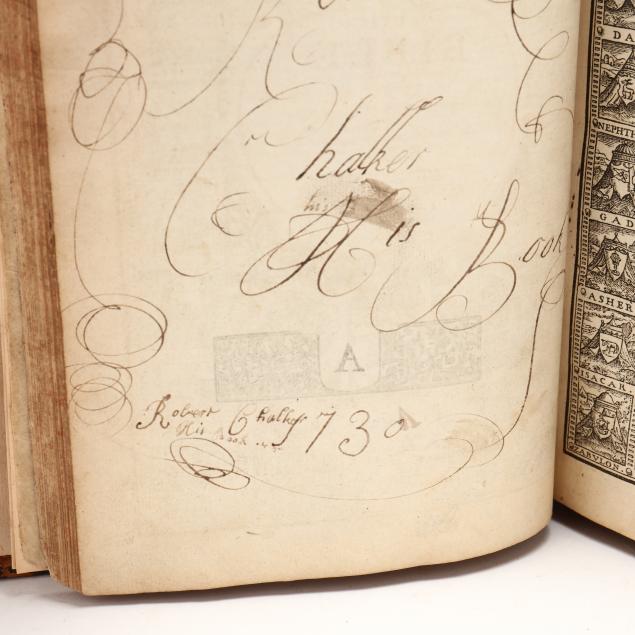 Chalker
his
His Book
A
Robert Chalker 1730
His Book
DA
NEPHTH
GAD
ASHER
ZABVLON